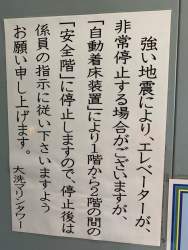 強い地震により、エレベーターが、
非常停止する場合がございますが、
「自動着床装置」により1階から2階の間の
「安全階」に停止しますので、停止後は
係員の指示に従い下さいますよう
お願い申し上げます。
大洗マリンタワー